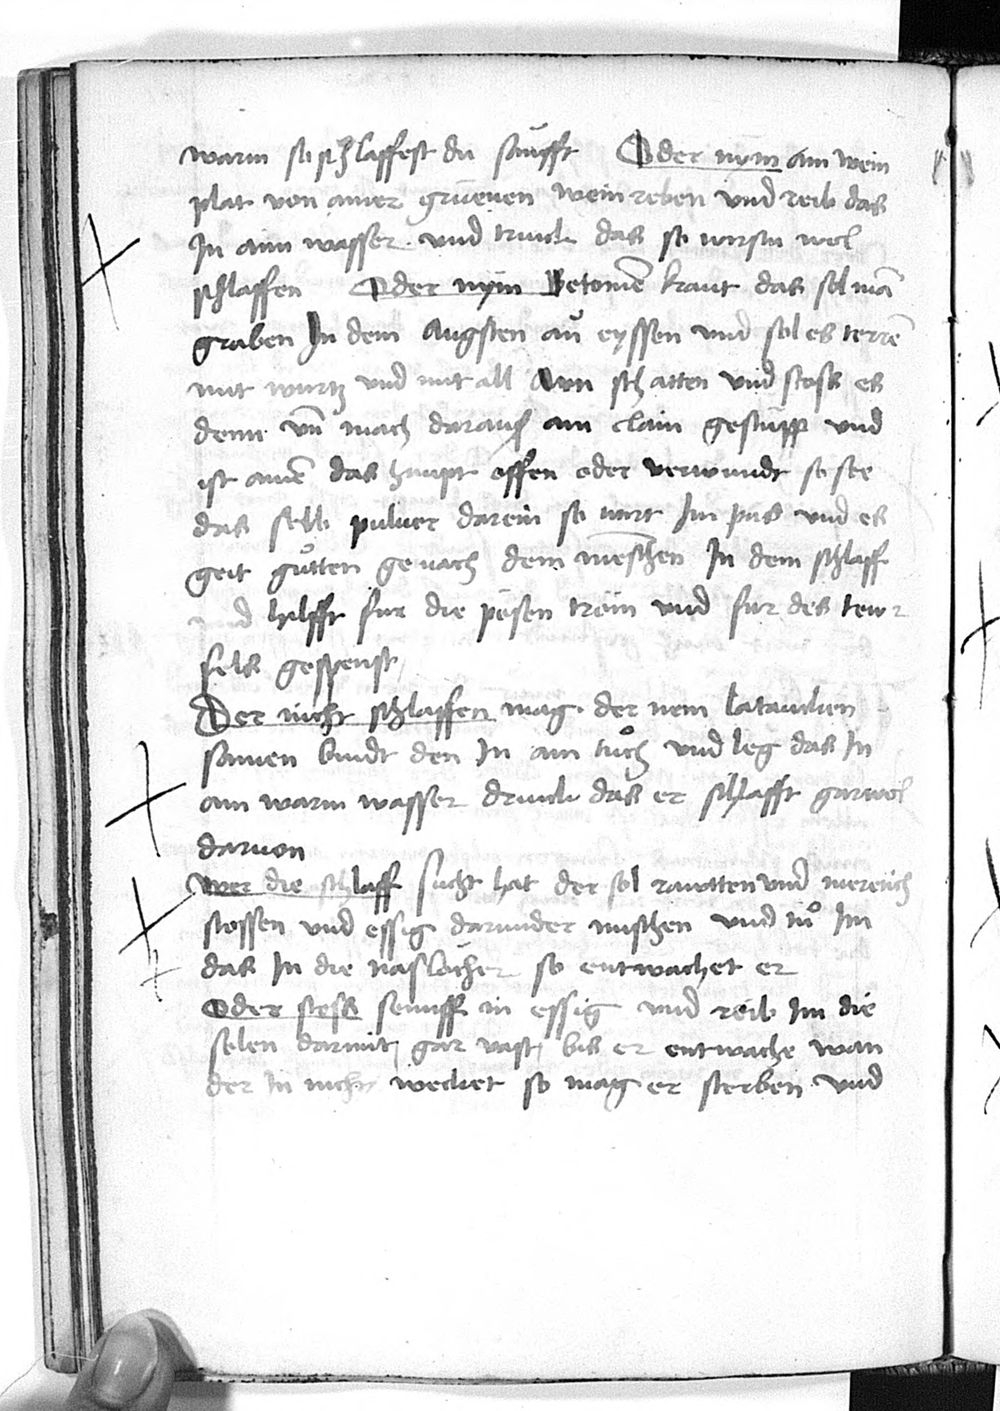 warm so schlaffest du sanfft Oder nym ain wein
plat von ainer grüenen weinreben und reib das
In ain wasser und trinck das so wirstu wol
schlaffen Oder nym Betonien kraut das sol mā
graben In dem Augsten ān eyssen und sol es terrē
mit wurtz und mit all Am schatten und stoss es
denn vn̄ mach darauss ain clain gestüpp und
ist ainē das haupt offen oder verwundt so see
das selb puluer darein so wirt Im pas und es
geit gůtten gemach dem menschen In dem schlaff
und hilfft fur die pösen träm und fur des tew
fels gespenst
Der nicht schlaffen mag der nem lataucken
samen bindt den In ain tůch und leg das In
ain warm wasser drinck das er schlafft gar wol
daruon
Wer die schlaff sucht hat der sol rawtten und merretich
stossen und essig darunder mischen und tů Im
das In die naslöcher so entwachet er
Oder stoss senniff in essig und reib Im die
solen darmit gar vast bis er entwache wan
der In nicht wecket so mag er sterben und